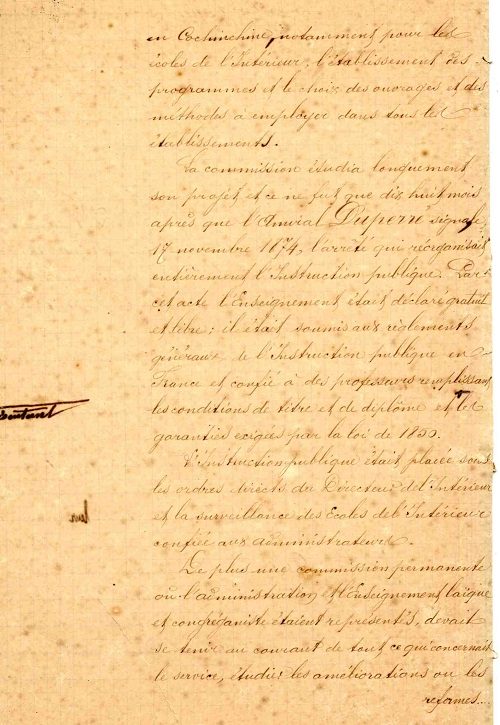 en Cochinchine, notamment pour les
écoles de l'Intérieur, l'établissement des
programmes et le choix des ouvrages et des
méthodes à employer dans tous les
établissements.
La commission étudia longuement
son projet et ce ne fut que dix huit mois
après que l'Amiral Duperré signale,
17 novembre 1874, l'arrêté qui réorganisait
entièrement l'Instruction publique. Par
cet acte l'Enseignement était déclaré gratuit
et libre; il était soumis aux règlements
généraux de l'Instruction publique en
France et confié à des professeurs remplissant
les conditions de titre et de diplôme et les
garanties exigées par la loi de 1850.
L'Instruction publique était placée sous
les ordres directs du Directeur de l'Intérieur
et la surveillance des Ecoles de l'Intérieur
confiée aux administrateurs.
De plus une commission permanente
où l'administration et l'Enseignement laïque
et congréganiste étaient représentés, devait
se tenir au courant de tout ce qui concernait
le service, étudier les améliorations ou les
réformes...